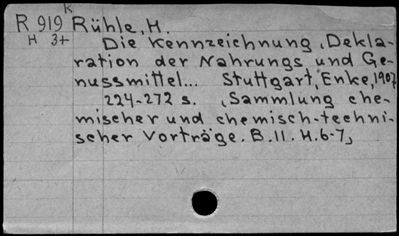 K
R 919 Rühle, H.
H 3+ Die Kennzeichnung, Dekla-
ration der Nahrungs und Ge-
nussmittel... Stuttgart, Enke, 1907
224-272 s. (Sammlung che-
mischer und chemisch-techni-
scher Vorträge. B.11. H.6-7)